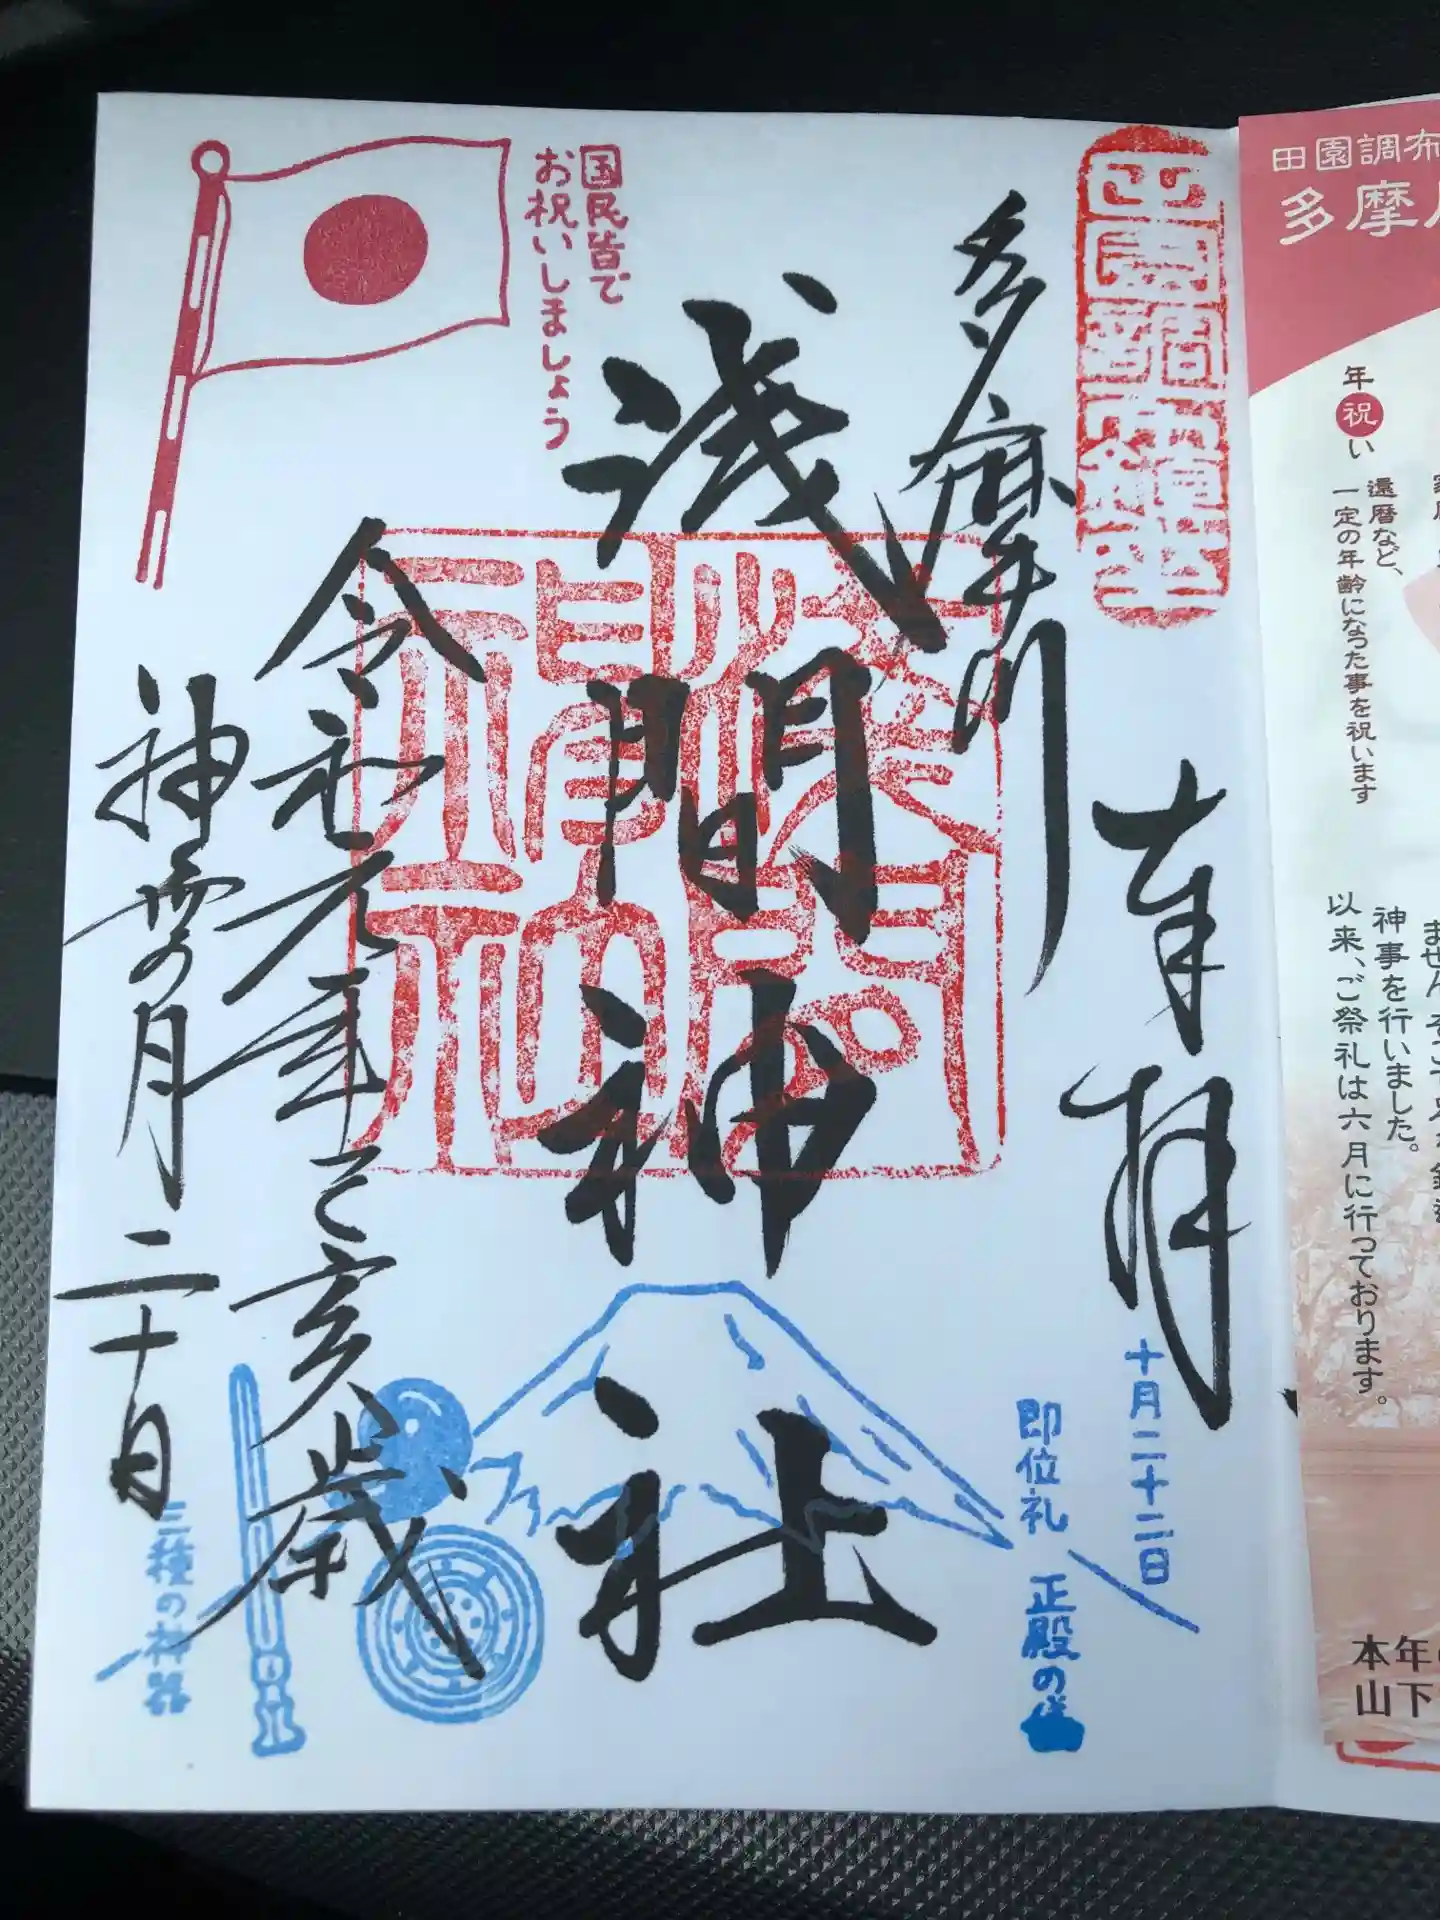 田園調布鎮座
奉拝
多摩川
浅間神社
令和元年己亥歳
神無月二十日
国民皆で
お祝いしましょう
十月二十二日
即位礼 正殿の
三種の神器
浅間神社
田園調布
多摩
年祝い
還暦など、
一定の年齢になった事を祝います
神事を行いました。
以来、ご祭礼は六月に行っております。
本年
山下